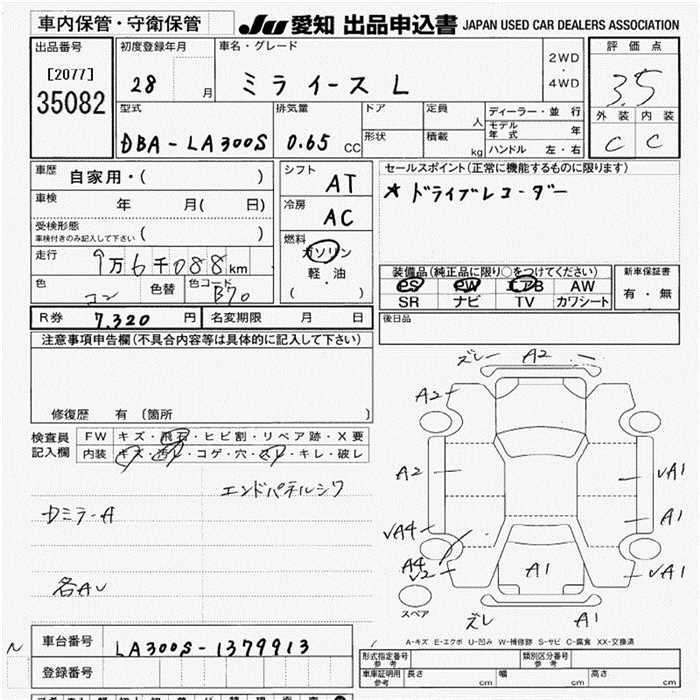 車内保管・守衛保管 JU 愛知 出品申込書 JAPAN USED CAR DEALERS ASSOCIATION
出品番号 初度登録年月 車名・グレード 評価点
[2077] 28 月 ミライース L 2WD・4WD 3.5
35082 型式 排気量 ドア 定員 人 ディーラー・並行 外装 内装
DBA-LA300S 0.65 CC 形状 積載 kg モデル年式 年 C C
ハンドル 左・右
車歴 自家用・( ) シフト AT セールスポイント(正常に機能するものに限ります)
車検 年 月( 日) 冷房 AC ★ドライブレコーダー
受検形態 ( )
車検付きのみ記入して下さい
走行 9万6千088km 燃料 ガソリン
軽・油
( )
装備品(純正品に限り○をつけてください) 新車保証書
色 コン 色替 色コード B70 PS PW エアB AW 有・無
SR ナビ TV カワシート
R券 7,320 円 名変期限 月 日 後日品
注意事項申告欄(不具合内容等は具体的に記入して下さい)
修復歴 有 〔箇所 〕
検査員 FW キズ・飛石・ヒビ割・リペア跡・X要
記入欄 内装 キズ・汚レ・コゲ・穴・スレ・キレ・破レ
ズレ A2
A2
A2 vA1
A1
vA4
A4
v2 A1 vA1
ズレ A1
スペア
エンドパネルシワ
Dミラ-A
各AU
A-キズ E-エクボ U-凹み W-補修跡 S-サビ C-腐食 XX-交換済
N 車台番号 LA300S-1379913
登録番号
形式指定番号 参考 類別区分番号 参考
車庫証明用 参考 長さ cm 幅 cm 高さ cm